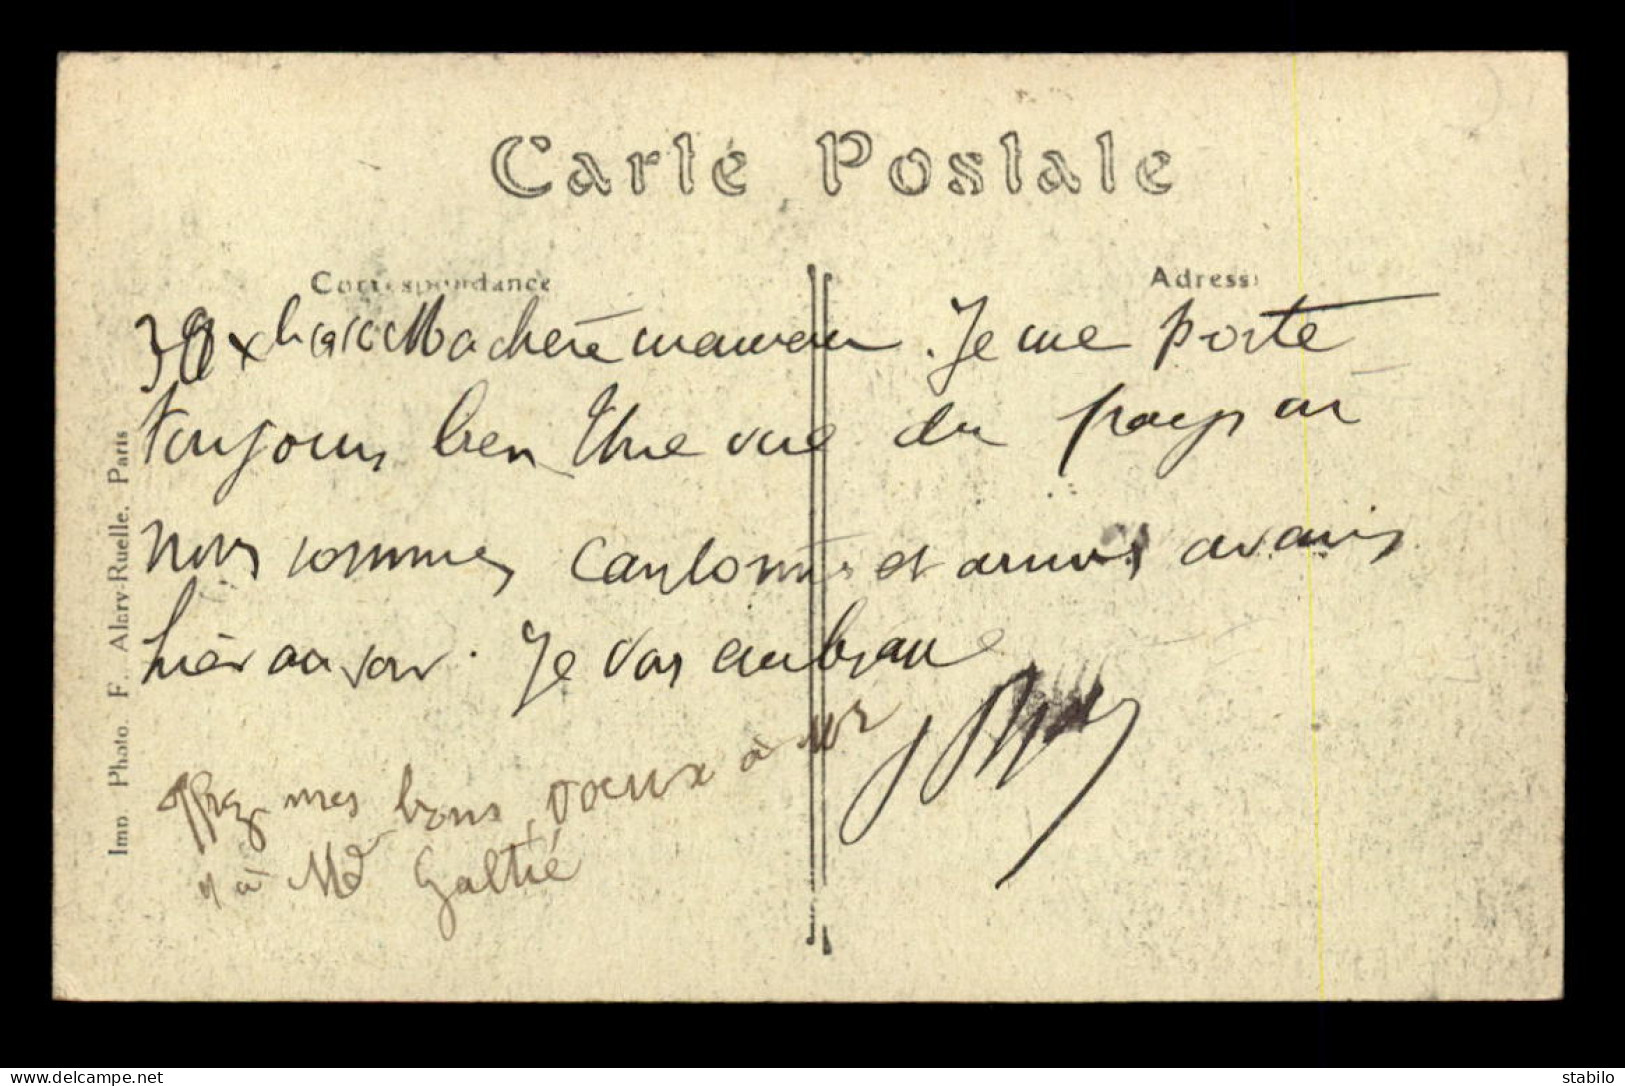 Carte Postale
Correspondance
Adresse
Ma chère maman. Je me porte
toujours bien Une vue du pays où
nous sommes cantonnés et arrivés avant
hier au soir. Je vous embrasse
offrez mes bons voeux à Mr
à Md Galtié
Imp. Photo. F. Alary-Ruelle. Paris
delcampe.net
stabilo